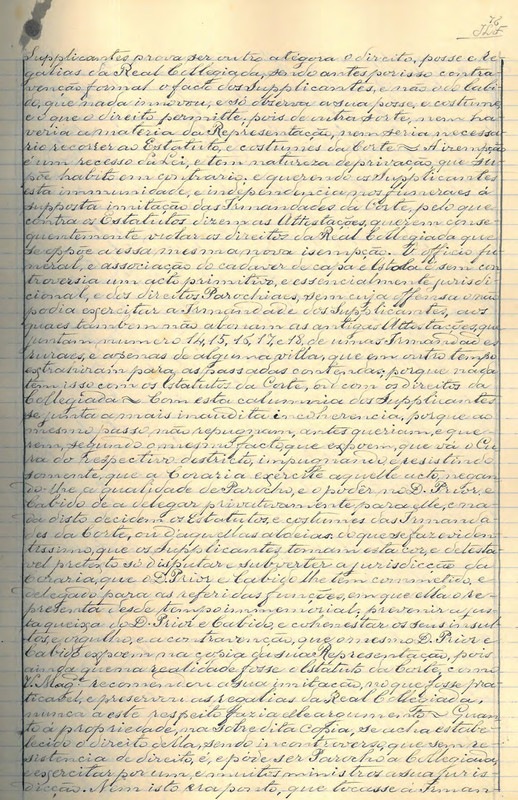 76
Supplicantes prova ser outro atégora o direito, posse e re-
galias da Real Collegiada, sendo antes por isso contra-
venção formal o facto dos Supplicantes, e não o do Cabi-
do, que nada innovou, e só observa a sua posse, e costume,
e o que o direito permitte, pois de outra sorte, nem ha-
veria a materia da Representação, nem seria necessa-
rio recorrer ao Estatuto, e costumes da Corte. A isempção
é um recesso da Lei, e tem natureza de privação, que sup-
põe habito em contrario: e querendo os Supplicantes
esta immunidade, e independencia, nos funeraes á
supposta imitação das Irmandades da Corte, pelo que
contra os Estatutos dizem as Attestações, querem conse-
quentemente, violar os direitos da Real Collegiada que
se oppõe a essa mesma nova isempção. O officio fu-
neral, e associação do cadaver de capa e Estola é sem con-
troversia um acto primitivo, e essencialmente jurisdi-
cional, e dos direitos Parochiaes, sem cuja offensa o não
podia exercitar a Irmandade dos Supplicantes, aos
quaes tambem não abonam as antigas Attestações, que
juntam, numero 14, 15, 16, 17 e 18, de umas Irmandades
ruraes, e apenas de alguma villa, que em outro tempo
extrahiram para as passadas contendas; porque nada
têm isso com os Estatutos da Corte, ou com os direitos da
Collegiada. Com esta calumnia dos Supplicantes
se junta a mais inaudita incoherencia, porque ao
mesmo passo não repugnam, antes queriam, e que-
rem, segundo o mesmo facto, que expoem, que vá o Cu-
ra do respectivo destricto, impugnando, e resistindo
somente, que a Coraria exercite aquelle acto, negan-
do-lhe a qualidade de Parocho, e o poder no D. Prior, e
Cabido de a delegar privativamente para elle, e na-
da disto decidem os Estatutos, e costumes das Irmanda-
des da Corte, ou d'aquellas aldeias: do que se faz eviden-
tissimo, que os Supplicantes, tomam esta cor, e detesta-
vel pretexto só disputar e subverter a jurisdicção da
Coraria, que o D. Prior e Cabido lhe têm commetido, e
delegado para as referidas funções, em que ella o re-
presenta desde tempo immemorial, prevenir a jus-
ta queixa do D. Prior e Cabido, e cohonestar os seus insul-
tos, e orgulho, e a contravenção, que o mesmo D. Prior e
Cabido expoem na copia da sua Representação, pois
ainda que na realidade fosse o Estatuto da Corte, como
V. Mag.e recomendou a sua imitação, no que fosse pra-
ticavel, e preservou as regalias da Real Collegiada,
nunca a este respeito fazia elle argumento. Quan-
to á propriedade, na sobredita copia, se acha estabe-
lecido o direito della, sendo incontroverso, que sem re-
sistencia de direito, é, e póde ser Parocho a Collegiada,
e exercitar por um, e muitos ministros a sua juris-
dicção. Nem isto era ponto, que tocasse á Irman-